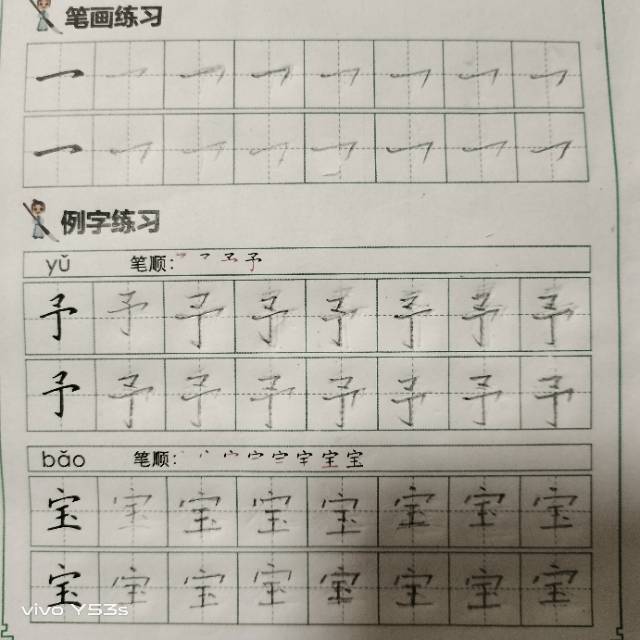 笔画练习
例字练习
yǔ 笔顺:
予 予 予 予 予 予 予 予
予 予 予 予 予 予 予 予
bǎo 笔顺:
宝 宝 宝 宝 宝 宝 宝 宝
宝 宝 宝 宝 宝 宝 宝 宝
vivo Y53s